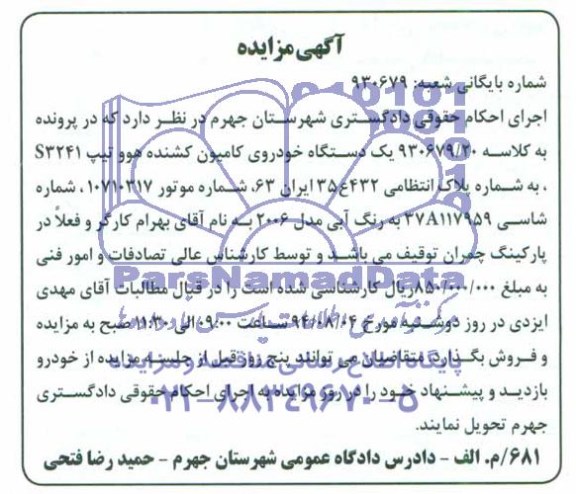 آگهی مزایده
شماره بایگانی شعبه: ۹۳۰۶۷۹
اجرای احکام حقوقی دادگستری شهرستان جهرم در نظر دارد که در پرونده
به کلاسه ۹۳۰۶۷۹/۲۰ یک دستگاه خودروی کامیون کشنده هوو تیپ S۳۲۴۱
، به شماره پلاک انتظامی ۴۳۲ع۳۵ ایران ۶۳، شماره موتور ۱۰۷۱۰۳۱۷، شماره
شاسی ۳۷A۱۱۷۹۵۹ به رنگ آبی مدل ۲۰۰۶ به نام آقای بهرام کارگر و فعلاً در
پارکینگ چمران توقیف می باشد و توسط کارشناس عالی تصادفات و امور فنی
به مبلغ ۸۵۰/۰۰۰/۰۰۰ریال کارشناسی شده است را در قبال مطالبات آقای مهدی
ایزدی در روز دوشنبه مورخ ۹۴/۰۸/۰۴ ساعت ۰۹:۰۰الی ۱۱:۳۰ صبح به مزایده
و فروش بگذارد. متقاضیان می توانند پنج روز قبل از جلسه مزایده از خودرو
بازدید و پیشنهاد خود را در روز مزایده به اجرای احکام حقوقی دادگستری
جهرم تحویل نمایند.
۶۸۱/م. الف - دادرس دادگاه عمومی شهرستان جهرم - حمید رضا فتحی
ParsNamadData
پایگاه اطلاع رسانی مناقصه و مزایده
۰۲۱-۸۸۳۴۹۶۷۰-۵